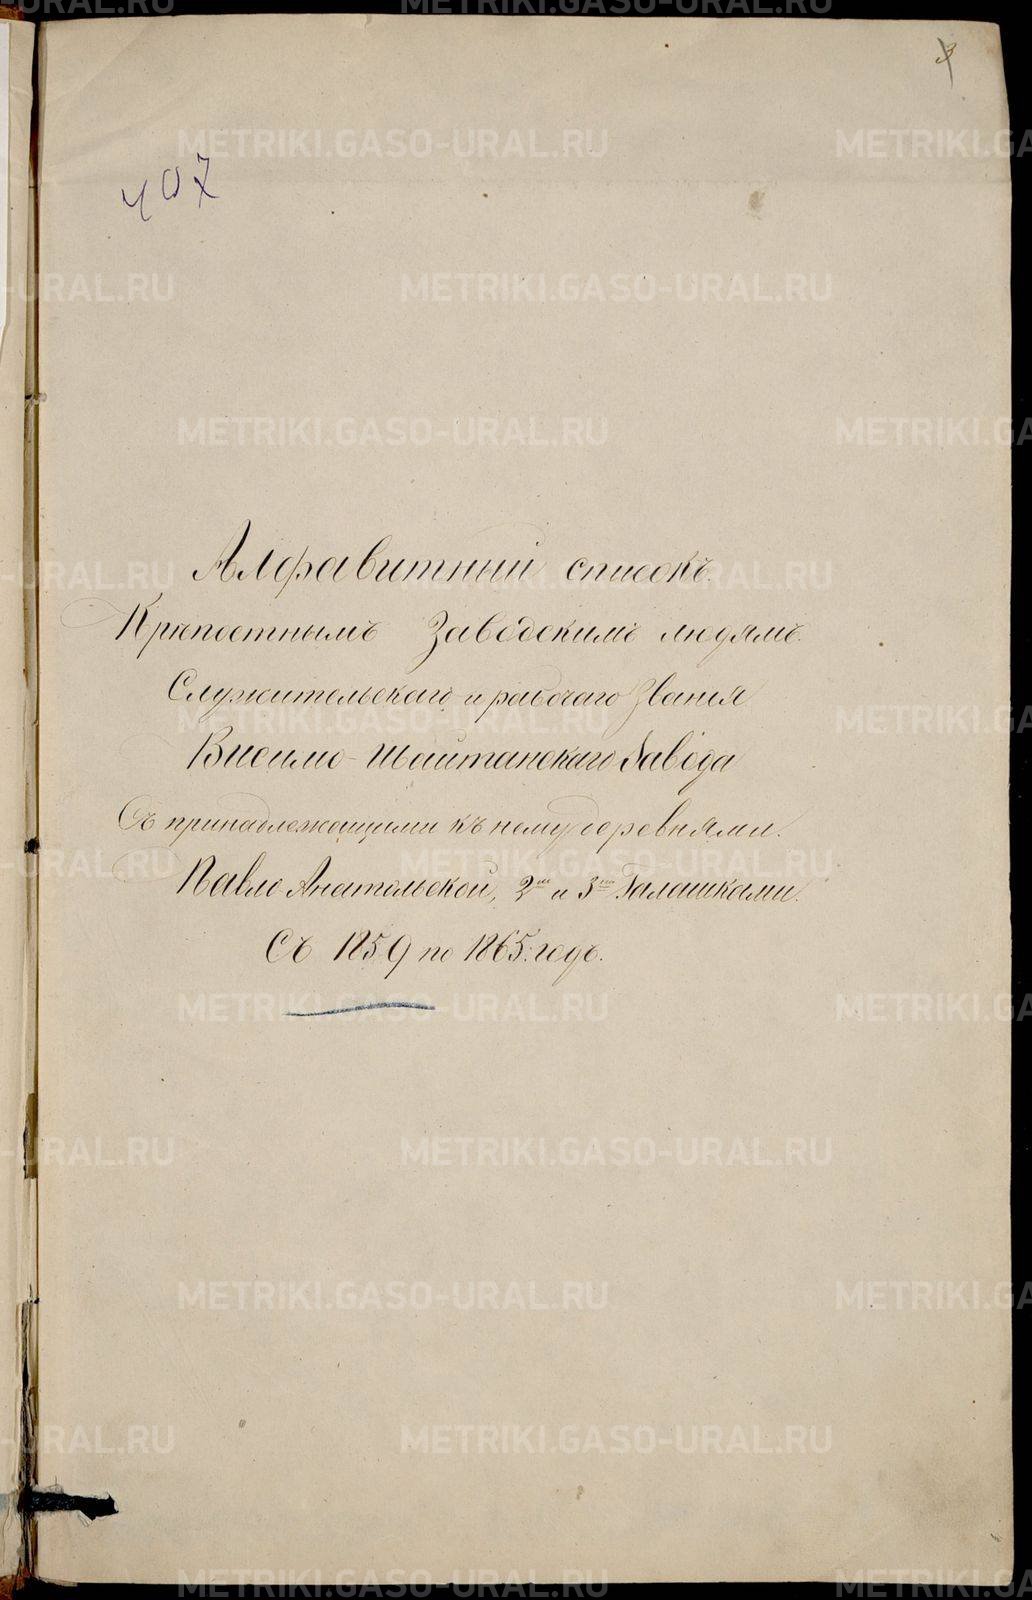 3
407
Алфавитный списокъ
Крѣпостнымъ Заводскимъ людямъ.
Служительскаго и рабочаго Званія
Висимо-Шайтанскаго Завода
Съ принадлежащими къ нему деревнями.
Павло Анатольской, 2ой и 3ей Галашками.
Съ 1859 по 1865 годъ.
METRIKI.GASO-URAL.RU